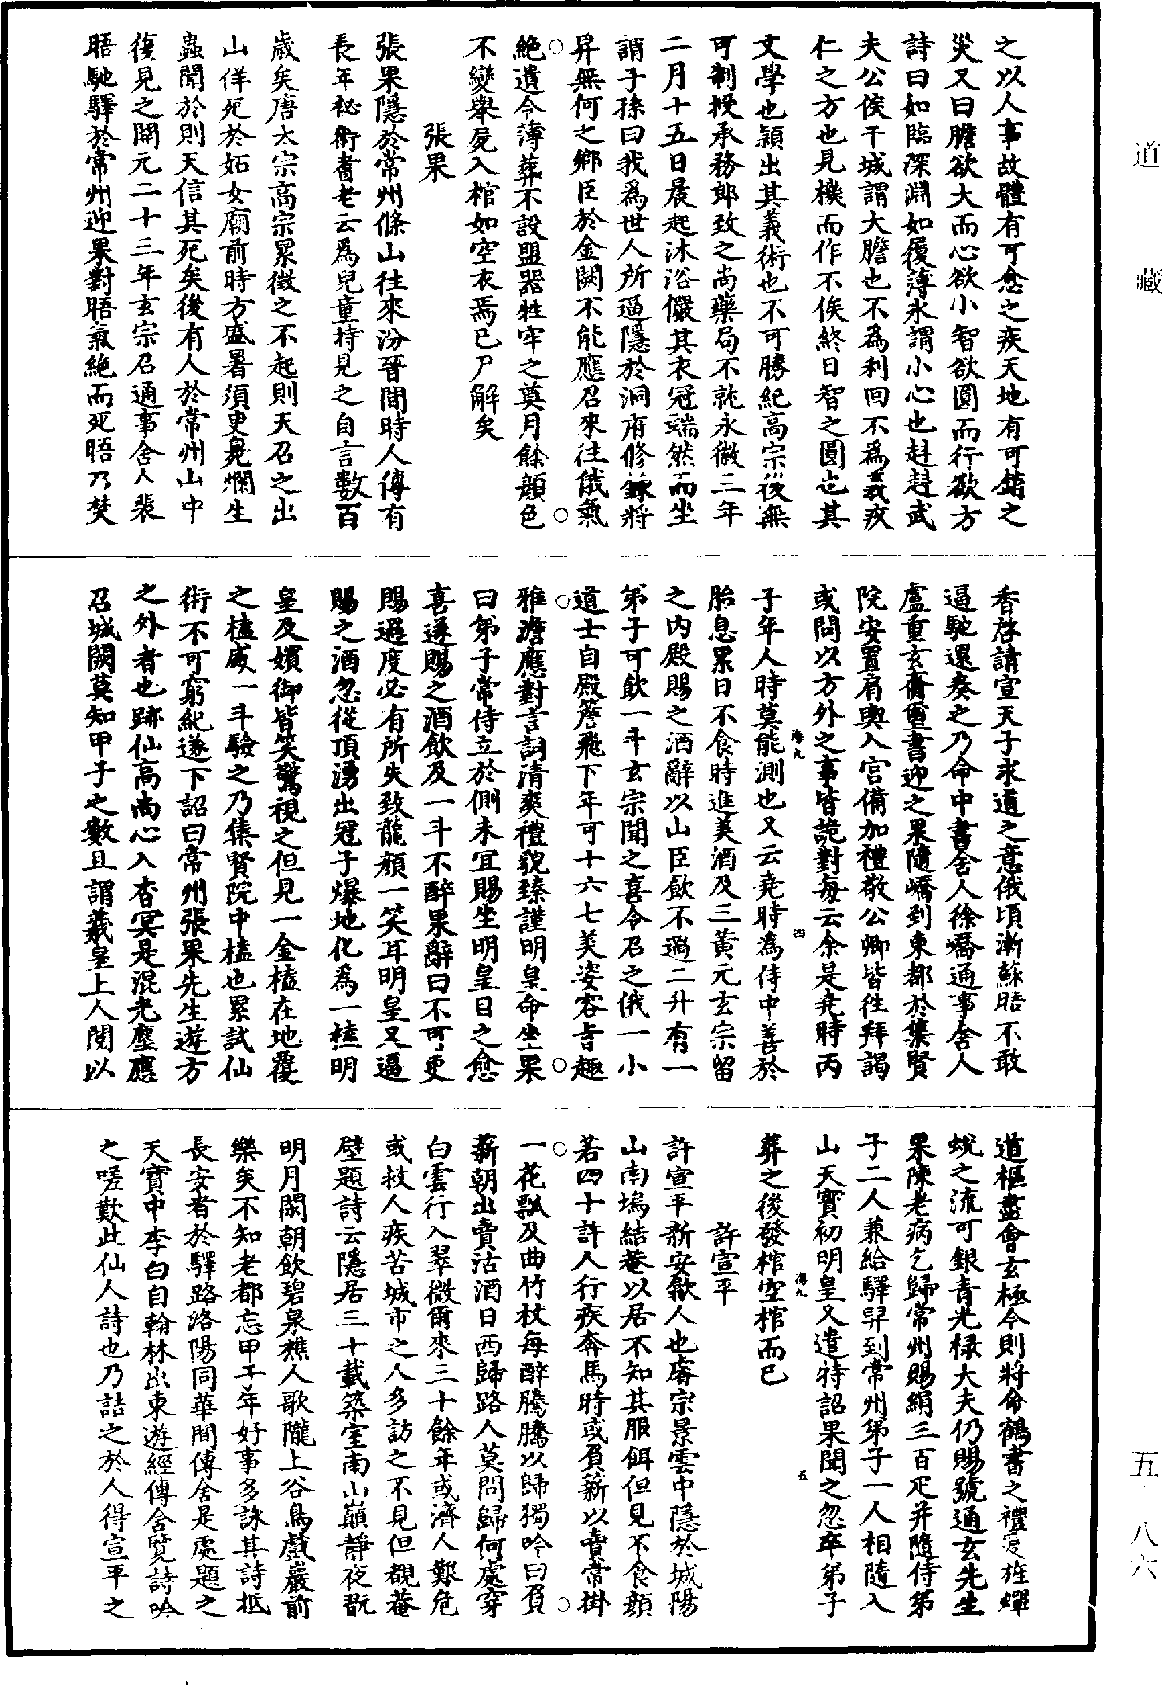 道藏
五·八六
之以人事故體有可愈之疾天地有可銷之
災又曰膽欲大而心欲小智欲圓而行欲方
詩曰如臨深淵如履薄冰謂小心也赳赳武
夫公侯干城謂大膽也不為利回不為義疚
仁之方也見機而作不俟終日智之圓也其
文學也穎出其義術也不可勝紀高宗後無
可制授承務郎致之尚藥局不就永徽三年
二月十五日晨起沐浴儼其衣冠端然而坐
謂子孫曰我為世人所逼隱於洞府修鍊將
昇無何之鄉臣於金闕不能應召來往俄氣
絶遺令薄葬不設盟器牲牢之奠月餘顔色
不變舉屍入棺如空衣焉已尸解矣
張果
張果隱於常州條山往來汾晉間時人傳有
長年祕術耆老云為兒童持見之自言數百
歲矣唐太宗高宗累徵之不起則天召之出
山佯死於妬女廟前時方盛暑須臾臭爛生
蟲聞於則天信其死矣後有人於常州山中
復見之開元二十三年玄宗召通事舍人裴
晤馳驛於常州迎果對晤氣絶而死晤乃焚
香啓請宣天子求道之意俄頃漸蘇晤不敢
逼馳還奏之乃命中書舍人徐嶠通事舍人
盧重玄齎璽書迎之果隨嶠到東都於集賢
院安置肩輿入宮備加禮敬公卿皆往拜謁
或問以方外之事皆詭對每云余是堯時丙
子年人時莫能測也又云堯時為侍中善於
胎息累日不食時進美酒及三黃元玄宗留
之內殿賜之酒辭以山臣飲不過二升有一
弟子可飲一斗玄宗聞之喜令召之俄一小
道士自殿簷飛下年可十六七美姿容旨趣
雅澹應對言詞清爽禮貌臻謹明皇命坐果
曰弟子常侍立於側未宜賜坐明皇目之愈
喜遂賜之酒飲及一斗不醉果辭曰不可更
賜過度必有所失致龍顏一笑耳明皇又逼
賜之酒忽從頂湧出冠子爆地化為一榼明
皇及嬪御皆笑驚視之但見一金榼在地覆
之榼盛一斗驗之乃集賢院中榼也累試仙
術不可窮紀遂下詔曰常州張果先生遊方
之外者也跡仙高尚心入杳冥是混光塵應
召城闕莫知甲子之數且謂羲皇上人問以
道樞盡會玄極今則將命鶴書之禮爰旌蟬
蛻之流可銀青光祿大夫仍賜號通玄先生
果陳老病乞歸常州賜絹三百疋并隨侍弟
子二人兼給驛舁到常州弟子一人相隨入
山天寶初明皇又遣特詔果聞之忽卒弟子
葬之後發棺空棺而已
許宣平
許宣平新安歙人也睿宗景雲中隱於城陽
山南塢結菴以居不知其服餌但見不食顏
若四十許人行疾奔馬時或負薪以賣常掛
一花瓢及曲竹杖每醉騰騰以歸獨吟曰負
薪朝出賣沽酒日西歸路人莫問歸何處穿
白雲行入翠微爾來三十餘年或濟人艱危
或救人疾苦城市之人多訪之不見但覩菴
壁題詩云隱居三十載築室南山巔靜夜翫
明月閑朝飲碧泉樵人歌隴上谷鳥戲巖前
樂矣不知老都忘甲子年好事多詠其詩抵
長安者於驛路洛陽同華間傳舍是處題之
天寶中李白自翰林出東遊經傳舍覽詩吟
之嗟歎此仙人詩也乃詰之於人得宣平之
海九
四
海九
五